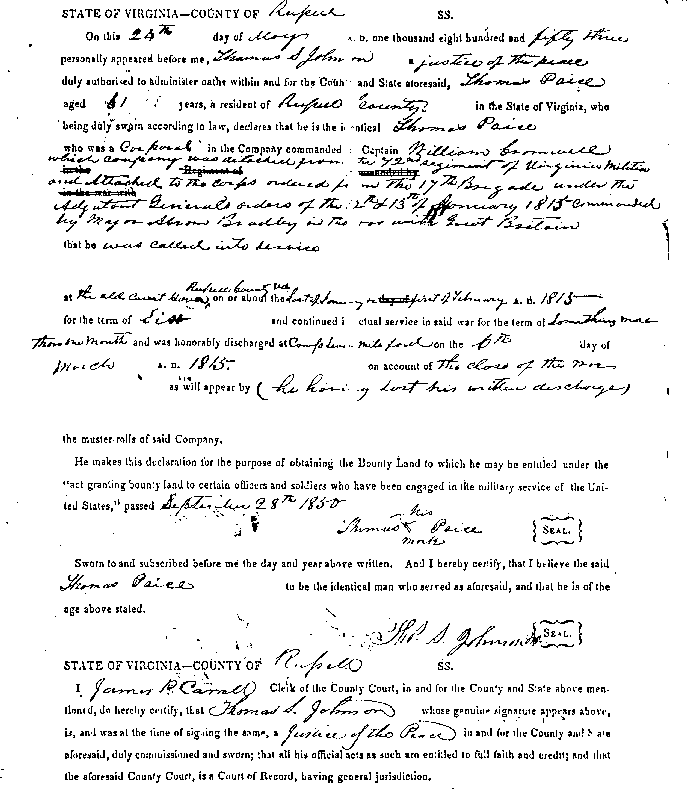 STATE OF VIRGINIA—COUNTY OF Russell SS.
On this 24th day of May A. D. one thousand eight hundred and fifty three
personally appeared before me, Thomas S Johnson a justice of the peace
duly authorised to administer oaths within and for the County and State aforesaid, Thomas Paice
aged years, a resident of Russell County in the State of Virginia, who
being duly sworn according to law, declares that he is the identical Thomas Paice
who was a Corporal in the Company commanded Captain William Cromwell
which company was detached from the 72nd regiment of Virginia Militia
and Attached to the corps ordered from the 17th Brigade under the
Adjutant Generals orders of the 2th & 13th of January 1815 commanded
by Major Bradley in the war with Great Britain
that he was called into service
Russell County Va
at the old Court House on or about the last of or first of February A. D. 1815
for the term of Six and continued in actual service in said war for the term of
month and was honorably discharged at Camp on the 6th day of
March A. D. 1815. on account of the close of the war
as will appear by (he having lost his written discharge)
the muster-rolls of said Company.
He makes this declaration for the purpose of obtaining the Bounty Land to which he may be entitled under the
"act granting bounty land to certain officers and soldiers who have been engaged in the military service of the Uni-
ted States," passed September 28th 1850
his
Thomas X Paice {SEAL.}
mark
Sworn to and subscribed before me the day and year above written. And I hereby certify, that I believe the said
Thomas Paice to be the identical man who served as aforesaid, and that he is of the
age above stated.
Tho. S. Johnson {SEAL.}
STATE OF VIRGINIA—COUNTY OF Russell SS.
I James P. Carrell Clerk of the County Court, in and for the County and State above men-
tioned, do hereby certify, that Thomas S. Johnson whose genuine signature appears above,
is, and was at the time of signing the same, a Justice of the Peace in and for the County and State
aforesaid, duly commissioned and sworn; that all his official acts as such are entitled to full faith and credit; and that
the aforesaid County Court, is a Court of Record, having general jurisdiction.